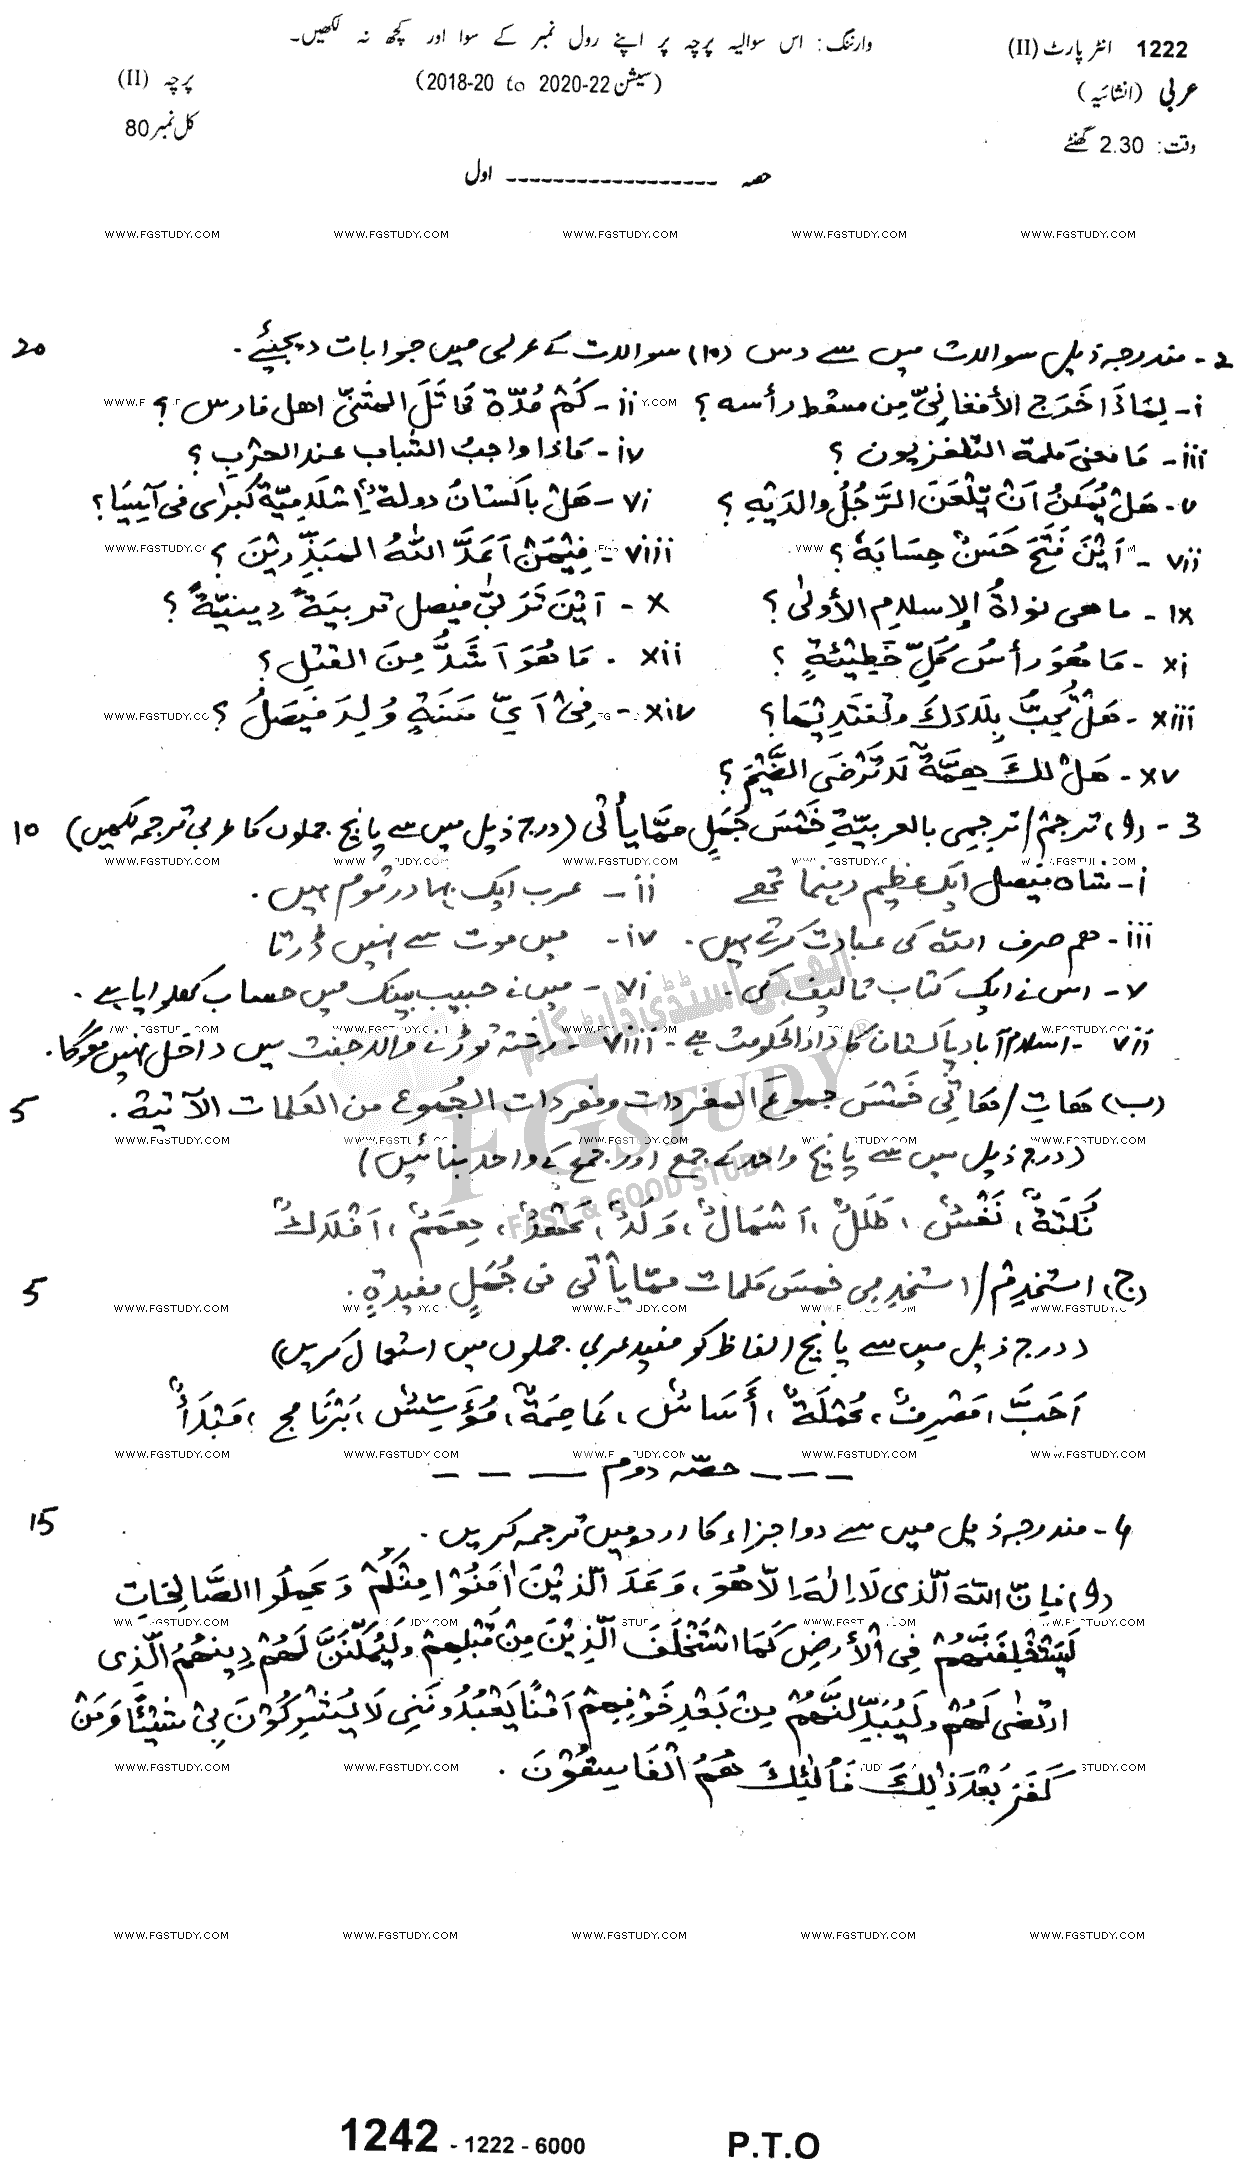 1222 انٹر پارٹ (II) وارننگ: اس سوالیہ پرچہ پر اپنے رول نمبر کے سوا اور کچھ نہ لکھیں۔
عربی (انشائیہ) (سیشن 2018-20 to 2020-22) پرچہ (II)
وقت: 2.30 گھنٹے کل نمبر 80
حصہ ------------------ اول
WWW.FGSTUDY.COM WWW.FGSTUDY.COM WWW.FGSTUDY.COM WWW.FGSTUDY.COM WWW.FGSTUDY.COM
2- مندرجہ ذیل سوالات میں سے دس (۱۰) سوالات کے عربی میں جوابات دیجیئے۔ 20
i- لِمَاذَا خَرَجَ الأفغانِیُّ مِن مسقط رأسه؟ ii- كَمْ مُدَّة قَاتَلَ المثنّى اهل فارس؟
iii- مَا معنى كلمة التلفزيون؟ iv- مَاذا واجبُ الشباب عند الحَرْبِ؟
v- هَلْ يُمكنُ اَنْ يَّلْعَنَ الرَّجُلُ والدَيْهِ؟ vi- هَلْ باكستانُ دولةٌ اِسْلَامِيّةٌ كُبرٰى فى آسِيَا؟
vii- اَيْنَ فَتَحَ حَسَنٌ حِسَابَهٗ؟ viii- فِيْمَنْ اَعَدَّ اللّٰهُ المبَذِّرِيْنَ؟
ix- ما هى نواةُ الإسلام الأولىٰ؟ x- اَيْنَ تَرَبّىٰ فيصل تربيَةً دينيّةً؟
xi- مَا هُوَ رأسُ كُلِّ خَطِيْئَةٍ؟ xii- مَا هُوَ اَشَدُّ مِنَ القتلِ؟
xiii- هَلْ تُحِبُّ بِلَادَكَ وتفتديها؟ xiv- فِىْ اَيِّ سَنَةٍ وُلِدَ فَيصَلُ؟
xv- هَلْ لكَ هِمَّةٌ لَا تَرْضَى الضَّيْمَ؟
3- (ا) ترجم/ترجمى بالعربيّةِ خَمْسَ جُمَلٍ ممّا يأتى (درج ذیل میں سے پانچ جملوں کا عربی ترجمہ لکھیں) 10
i- شاہ فیصل ایک عظیم رہنما تھے ii- عرب ایک بہادر قوم ہیں۔
iii- ہم صرف اللہ کی عبادت کرتے ہیں۔ iv- میں موت سے نہیں ڈرتا
v- اس نے ایک کتاب تالیف کی۔ vi- میں نے حبیب بینک میں حساب کھلوایا ہے۔
vii- اسلام آباد پاکستان کا دارالحکومت ہے۔ viii- رشتہ توڑنے والا جنت میں داخل نہیں ہوگا۔
(ب) هات/هاتى خَمْسَ جموعَ المفردات ومفردات الجُموع من الكلمات الآتية۔ 5
(درج ذیل میں سے پانچ واحد کے جمع اور جمع کے واحد بنائیں)
نُكتةٌ، نَفْسٌ، طَلَلٌ، اَشْمَالٌ، وَلَدٌ، هِمَمٌ، اَفْلَاكٌ
(ج) استخدِمْ/استخدمى خمسَ كلمات ممّا يأتى فى جُمَلٍ مفيدةٍ۔ 5
(درج ذیل میں سے پانچ الفاظ کو مفید عربی جملوں میں استعمال کریں)
اَحَبَّ، مَصْرِفٌ، عُمْلَةٌ، أَسَاسٌ، عَاصِمَةٌ، مُؤَسِّسٌ، بَرْنَامج، مَبْدَأٌ
--- حصّہ دوم ---
4- مندرجہ ذیل میں سے دو اجزاء کا اردو میں ترجمہ کریں۔ 15
(ا) فاِنَّ اللّٰهَ الّذى لَا اِلٰهَ اِلَّا هُوَ، وَعَدَ الّذِيْنَ اٰمَنُوْا مِنْكُمْ وَ عَمِلُوا الصَّالِحَاتِ
لَيَسْتَخْلِفَنَّهُمْ فِى الْأَرضِ كَمَا اسْتَخْلَفَ الَّذِيْنَ مِنْ قَبْلِهِمْ وَلَيُمَكِّنَنَّ لَهُمْ دِينَهُمُ الَّذِى
ارتضٰى لَهُمْ وليُبَدِّلَنَّهُمْ مِنْ بَعْدِ خَوْفِهِمْ اَمْنًا يَعْبُدُونَنِى لَا يُشْرِكُوْنَ بِىْ شَيْئًا وَ مَنْ
كَفَرَ بَعْدَ ذٰلِكَ فَاُلٰئِكَ هُمُ الْفَاسِقُوْنَ۔
WWW.FGSTUDY.COM WWW.FGSTUDY.COM WWW.FGSTUDY.COM WWW.FGSTUDY.COM WWW.FGSTUDY.COM
1242 - 1222 - 6000 P.T.O